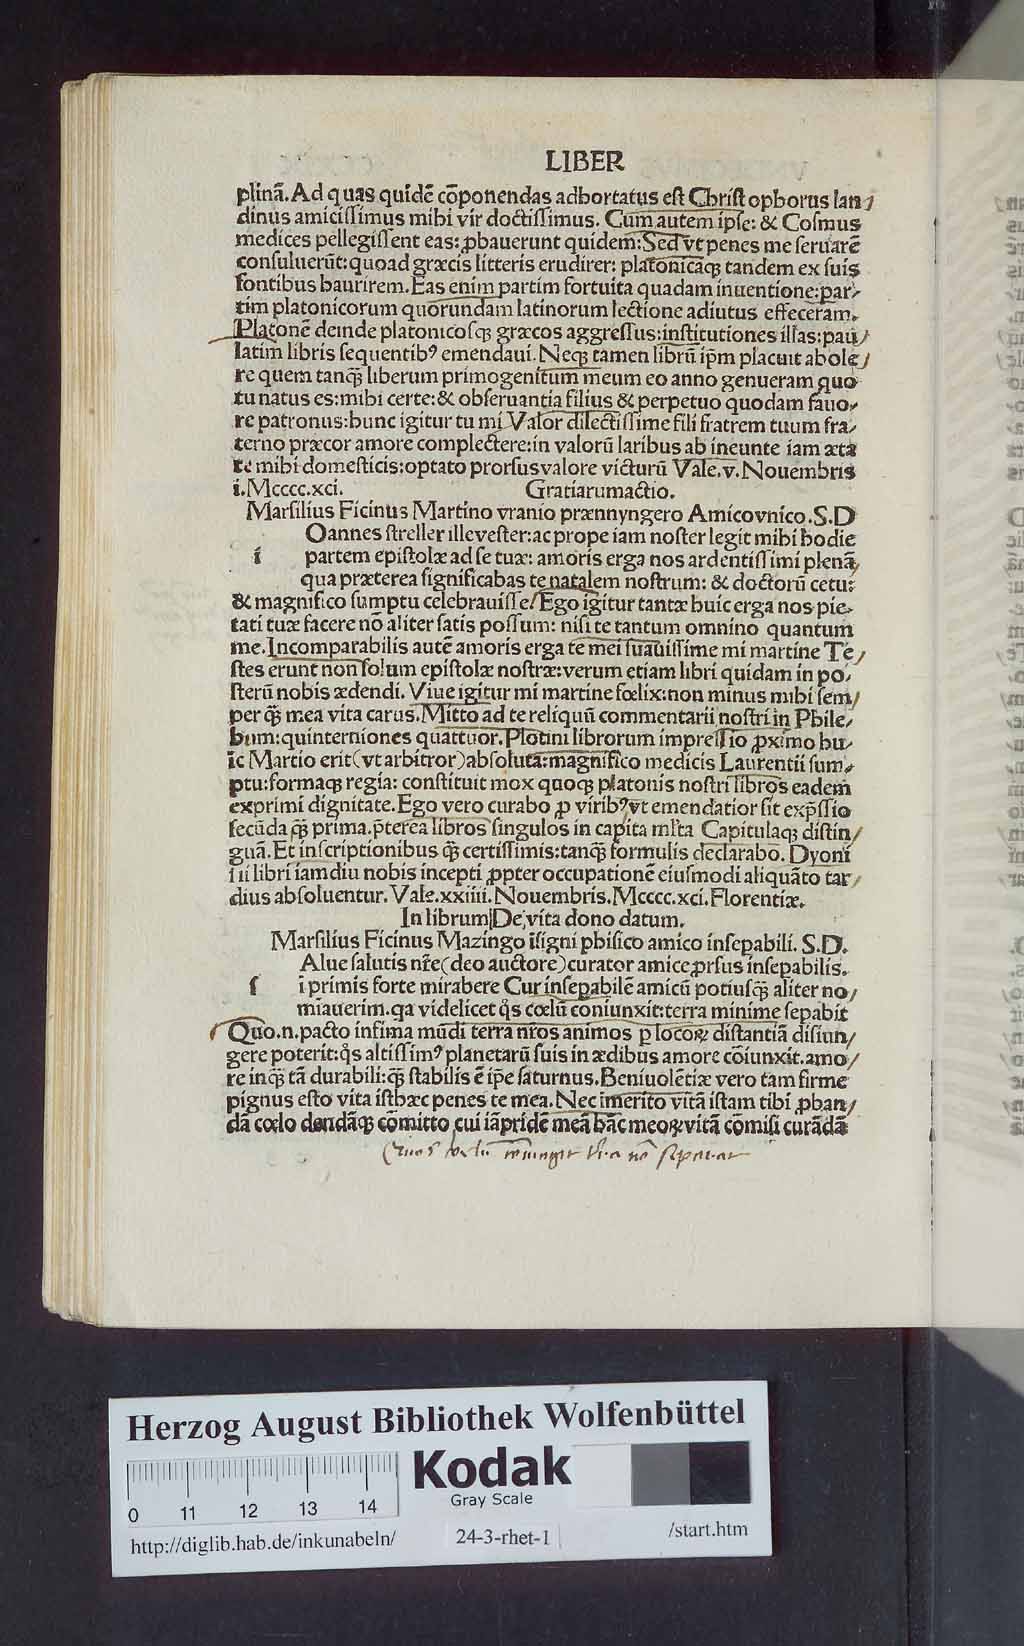 LIBER
plinā. Ad quas quidē cōponendas adhortatus eſt Chriſtophorus lan/
dinus amiciſſimus mihi vir doctiſſimus. Cum autem ipſe: & Coſmus
medices pellegiſſent eas: ꝓbauerunt quidem: Sed vt penes me ſeruarē
conſuluerūt: quoad græcis litteris erudirer: platonicaqꝫ tandem ex ſuis
fontibus haurirem. Eas enim partim fortuita quadam inuentione: par/
tim platonicorum quorundam latinorum lectione adiutus effeceram.
Platonē deinde platonicoſqꝫ græcos aggreſſus: inſtitutiones illas: pau/
latim libris ſequentibꝰ emendaui. Neqꝫ tamen librū ipm̄ placuit abole/
re quem tanqꝫ̄ liberum primogenitum meum eo anno genueram quo
tu natus es: mihi certe: & obſeruantia filius & perpetuo quodam fauo/
re patronus: hunc igitur tu mi Valor dilectiſſime fili fratrem tuum fra/
terno præcor amore complectere: in valorū laribus ab ineunte iam æta
te mihi domeſticis: optato prorſus valore victurū Vale. v. Nouembris
i. Mcccc.xci. Gratiarumactio.
Marſilius Ficinus Martino vranio prænnyngero Amico vnico. S.D
Oannes ſtreller ille veſter: ac prope iam noſter legit mihi hodie
i partem epiſtolæ ad ſe tuæ: amoris erga nos ardentiſſimi plenā,
qua præterea ſignificabas te natalem noſtrum: & doctorū cetu:
& magnifico ſumptu celebrauiſſe. Ego igitur tantæ huic erga nos pie/
tati tuæ facere nō aliter ſatis poſſum: niſi te tantum omnino quantum
me. Incomparabilis autē amoris erga te mei ſuauiſſime mi martine Te/
ſtes erunt non ſolum epiſtolæ noſtræ: verum etiam libri quidam in po/
ſterū nobis ædendi. Viue igitur mi martine fœlix: non minus mihi ſem/
per qꝫ̄ mea vita carus. Mitto ad te reliquū commentarii noſtri in Phile/
bum: quinterniones quattuor. Plotini librorum impreſſio ꝓximo hu/
ic Martio erit (vt arbitror) abſoluta: magnifico medicis Laurentii ſum/
ptu: formaqꝫ regia: conſtituit mox quoqꝫ platonis noſtri libros eadem
exprimi dignitate. Ego vero curabo ꝓ viribꝰ vt emendatior ſit exp̄ſſio
ſecūda qꝫ̄ prima. p̄terea libros ſingulos in capita ml̄ta Capitulaqꝫ diſtin/
guā. Et inſcriptionibus qꝫ̄ certiſſimis: tanqꝫ̄ formulis declarabo. Dyoni
ſii libri iamdiu nobis incepti ꝓpter occupationē eiuſmodi aliquāto tar/
dius abſoluentur. Vale. xxiiii. Nouembris. Mcccc.xci. Florentiæ.
In librum De vita dono datum.
Marſilius Ficinus Mazingo iſigni phiſico amico inſepabili. S.D.
Alue ſalutis nr̄e (deo auctore) curator amice ꝓrſus inſepabilis.
ſ i primis forte mirabere Cur inſepabilē amicū potiuſqꝫ̄ aliter no/
miauerim. qa videlicet qͦs cœlū coniunxit: terra minime ſepabit
Quo.n. pacto infima mūdi terra nr̄os animos ꝑ locoꝝ diſtantiā diſiun/
gere poterit: qͦs altiſſimꝰ planetarū ſuis in ædibus amore cōiunxit. amo/
re inqꝫ̄ tā durabili: qꝫ̄ ſtabilis ē ip̄e ſaturnus. Beniuolētiæ vero tam firme
pignus eſto vita iſthæc penes te mea. Nec imerito vitā iſtam tibi ꝓban/
dā cœlo dandāqꝫ cōmitto cui iāpridē meā hāc meoꝝ vitā cōmiſi curādā
Quos coelū coniungit t̄ra nō ſeparat
Herzog August Bibliothek Wolfenbüttel
Kodak
Gray Scale
0 11 12 13 14
http://diglib.hab.de/inkunabeln/ 24-3-rhet-1 /start.htm